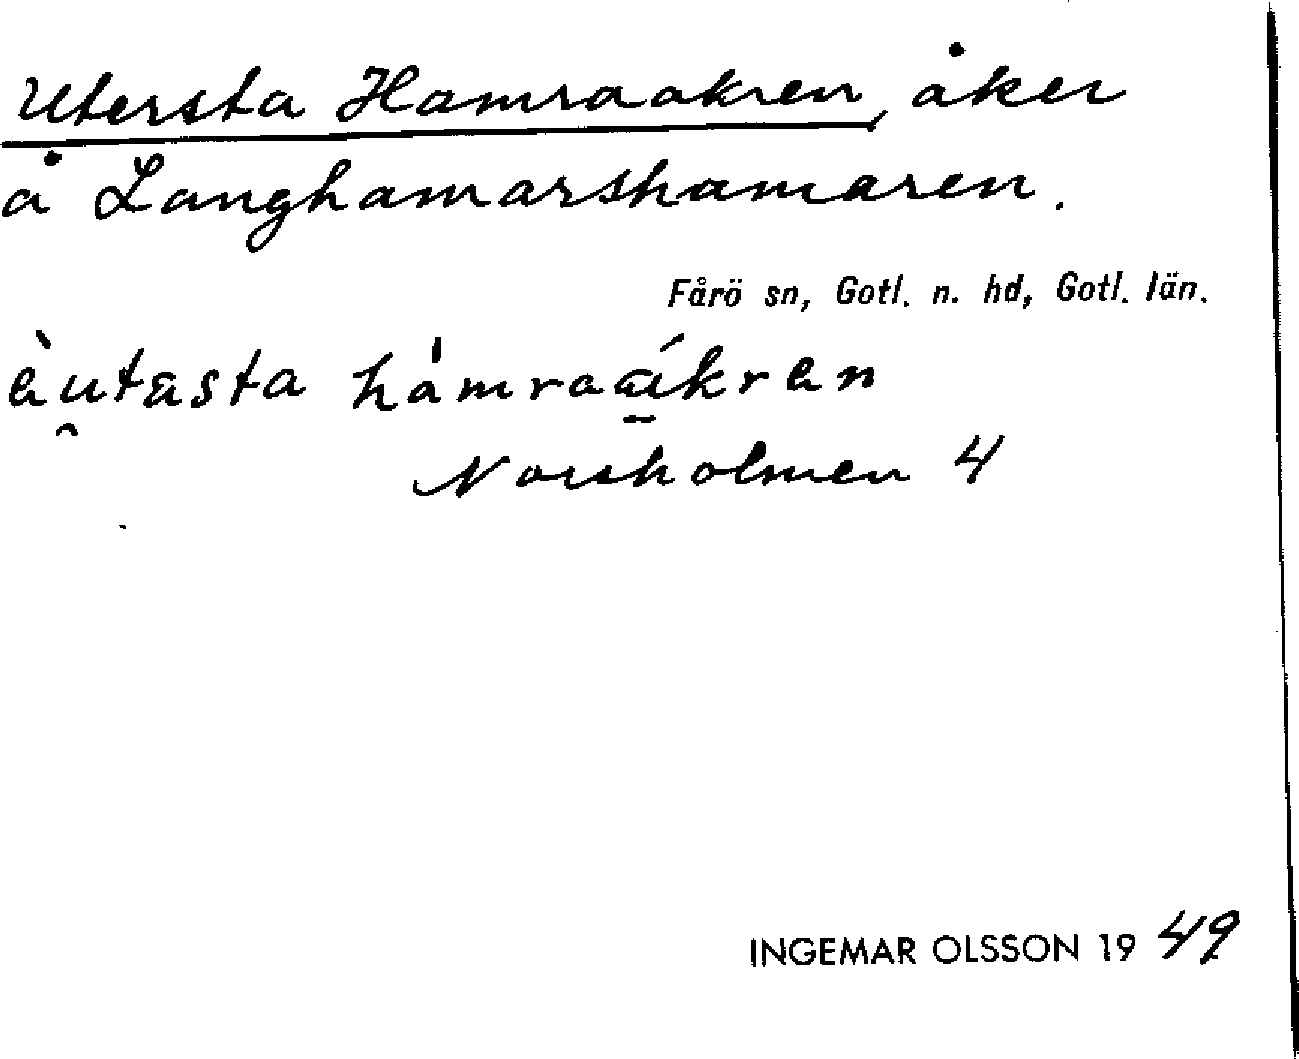 Utersta Hamraakren, åker
å Langhamarshamaren.
Fårö sn, Gotl. n. hd, Gotl. län.
èu̯tasta hámraǽkran
Norsholmen 4
INGEMAR OLSSON 19 49